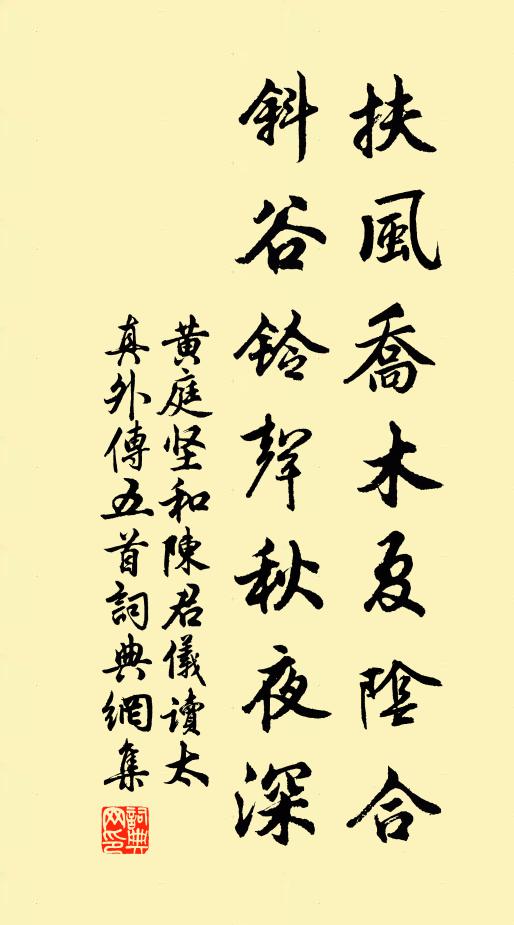 扶風喬木夏陰合
斜谷鈴聲秋夜深
黄庭坚和陳君儀讀太
真外傳五首詞典網集
詞典
网印